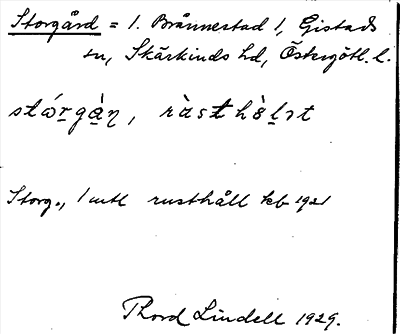 Storgård = 1. Brånnestad 1, Gistads
sn, Skärkinds hd, Östergötl. l.
stǿrgàn, ràsthò̀lst
Storg., 1 mtl rusthåll kb 1921
Thord Lindell 1929.